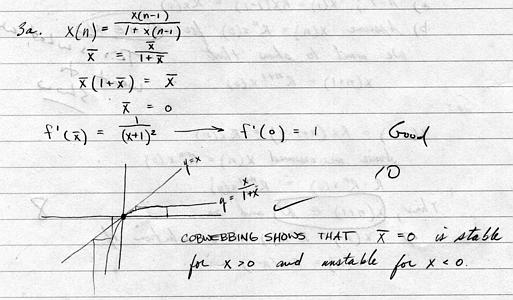 3a. x(n) = x(n-1) / 1 + x(n-1)
x̄ = x̄ / 1+x̄
x̄(1+x̄) = x̄
x̄ = 0
f'(x̄) = 1 / (x+1)² → f'(0) = 1 Good
10
y=x
y = x / 1+x ✓
COBWEBBING SHOWS THAT x̄ = 0 is stable
for x > 0 and unstable for x < 0.